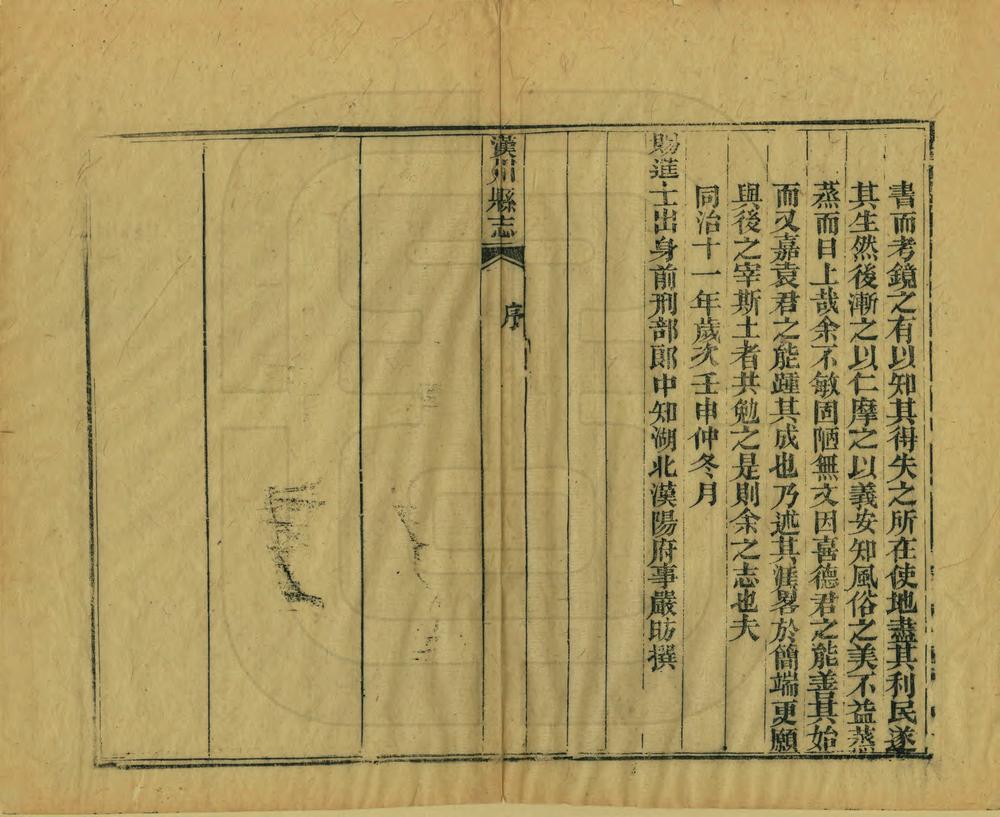 書而考鏡之有以知其得失之所在使地盡其利民遂
其生然後漸之以仁摩之以義安知風俗之美不益蒸
蒸而日上哉余不敏固陋無文因喜德君之能善其始
而又嘉袁君之能踵其成也乃述其涯畧於簡端更願
與後之宰斯土者共勉之是則余之志也夫
同治十一年歲次壬申仲冬月
賜進士出身前刑部郎中知湖北漢陽府事嚴昉撰
漢川縣志
序